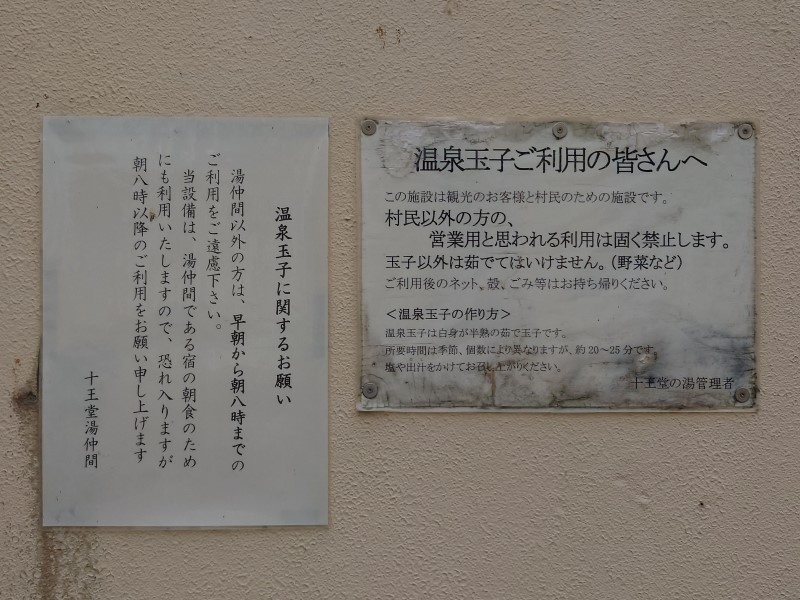 温泉玉子に関するお願い
湯仲間以外の方は、早朝から朝八時までの
ご利用をご遠慮下さい。
当設備は、湯仲間である宿の朝食のため
にも利用いたしますので、恐れ入りますが
朝八時以降のご利用をお願い申し上げます
十王堂湯仲間
温泉玉子ご利用の皆さんへ
この施設は観光のお客様と村民のための施設です。
村民以外の方の、
営業用と思われる利用は固く禁止します。
玉子以外は茹でてはいけません。(野菜など)
ご利用後のネット、殻、ごみ等はお持ち帰りください。
<温泉玉子の作り方>
温泉玉子は白身が半熟の茹で玉子です。
所要時間は季節、個数により異なりますが、約20~25分です。
塩や出汁をかけてお召し上がりください。
十王堂の湯管理者